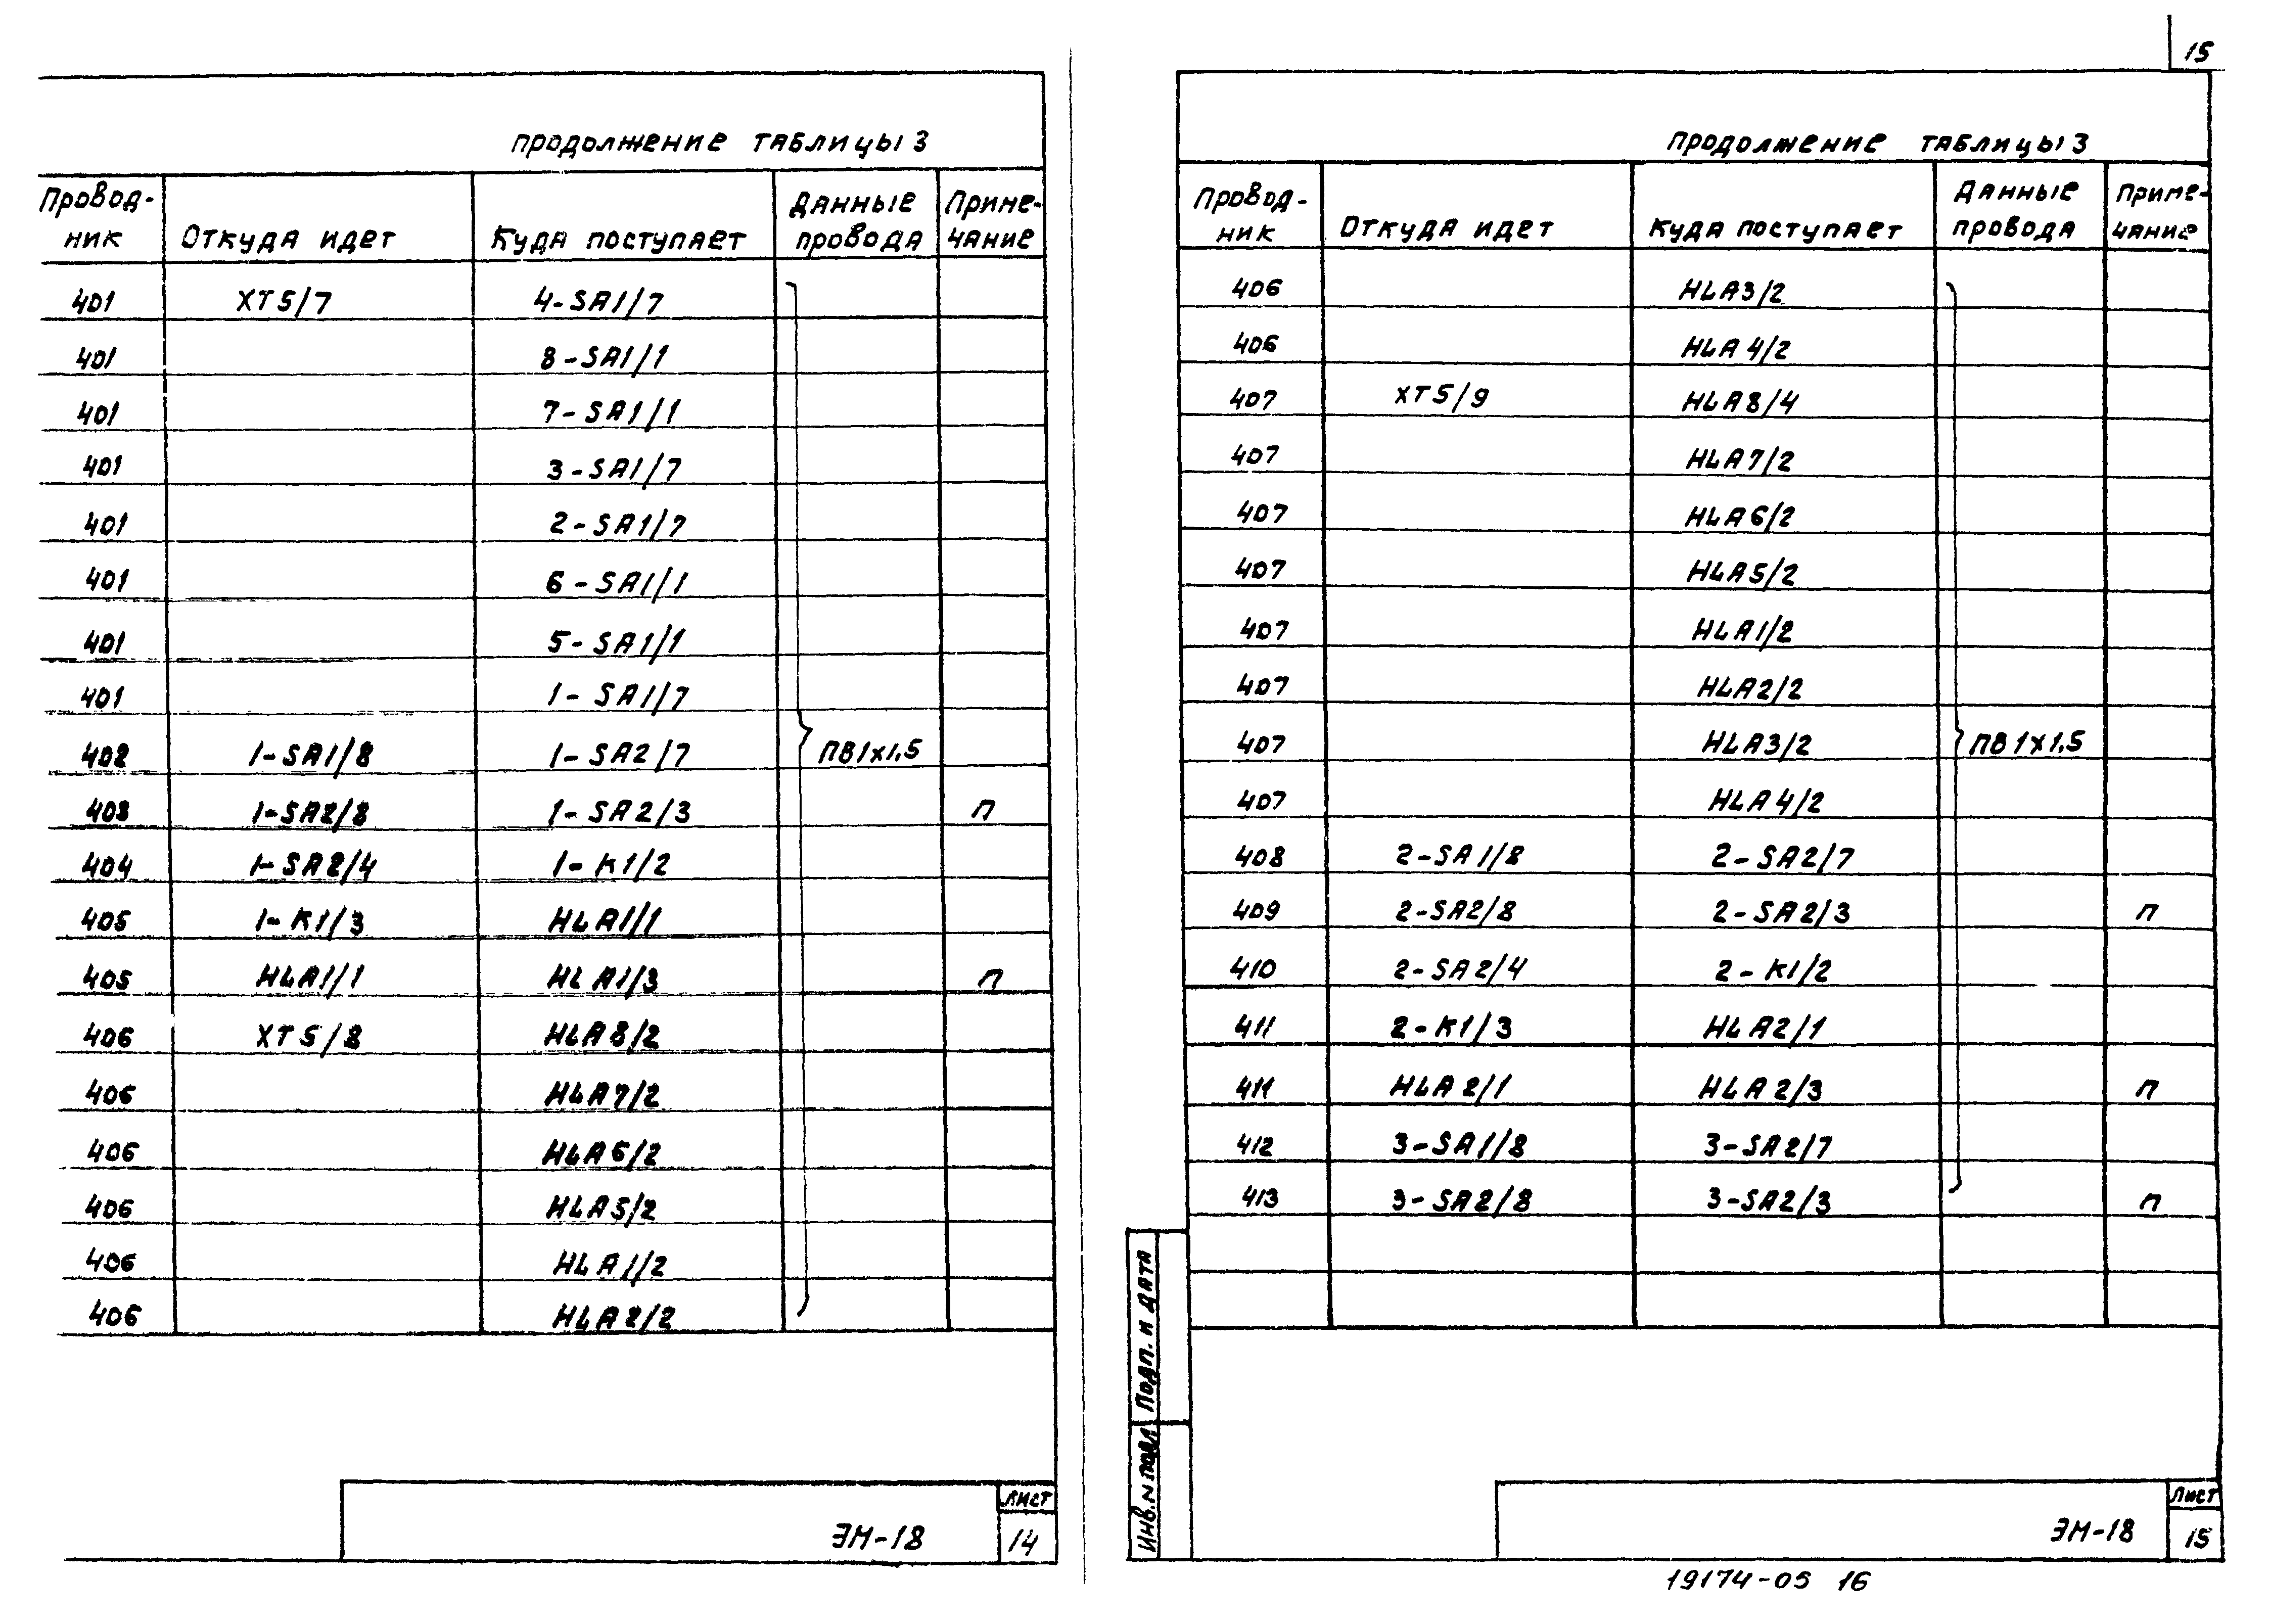 15
Продолжение таблицы 3
Провод-
ник
Откуда идет
Куда поступает
Данные
провода
Приме-
чание
401 XT5/7 4-SA1/7
401 8-SA1/1
401 7-SA1/1
401 3-SA1/7
401 2-SA1/7
401 6-SA1/1
401 5-SA1/1
401 1-SA1/7
402 1-SA1/8 1-SA2/7 ПВ1х1,5
403 1-SA2/8 1-SA2/3 п
404 1-SA2/4 1-К1/2
405 1-К1/3 HLA1/1
405 HLA1/1 HLA1/3 п
406 XT5/8 HLA8/2
406 HLA7/2
406 HLA6/2
406 HLA5/2
406 HLA1/2
406 HLA2/2
ЭМ-18
Лист
14
Продолжение таблицы 3
Провод-
ник
Откуда идет
Куда поступает
Данные
провода
Приме-
чание
406 HLA3/2
406 HLA4/2
407 XT5/9 HLA8/4
407 HLA7/2
407 HLA6/2
407 HLA5/2
407 HLA1/2
407 HLA2/2
407 HLA3/2 ПВ1х1,5
407 HLA4/2
408 2-SA1/8 2-SA2/7
409 2-SA2/8 2-SA2/3 п
410 2-SA2/4 2-К1/2
411 2-К1/3 HLA2/1
411 HLA2/1 HLA2/3 п
412 3-SA1/8 3-SA2/7
413 3-SA2/8 3-SA2/3 п
Подп. и дата
Инв. N подл
ЭМ-18
Лист
15
19174-05 16